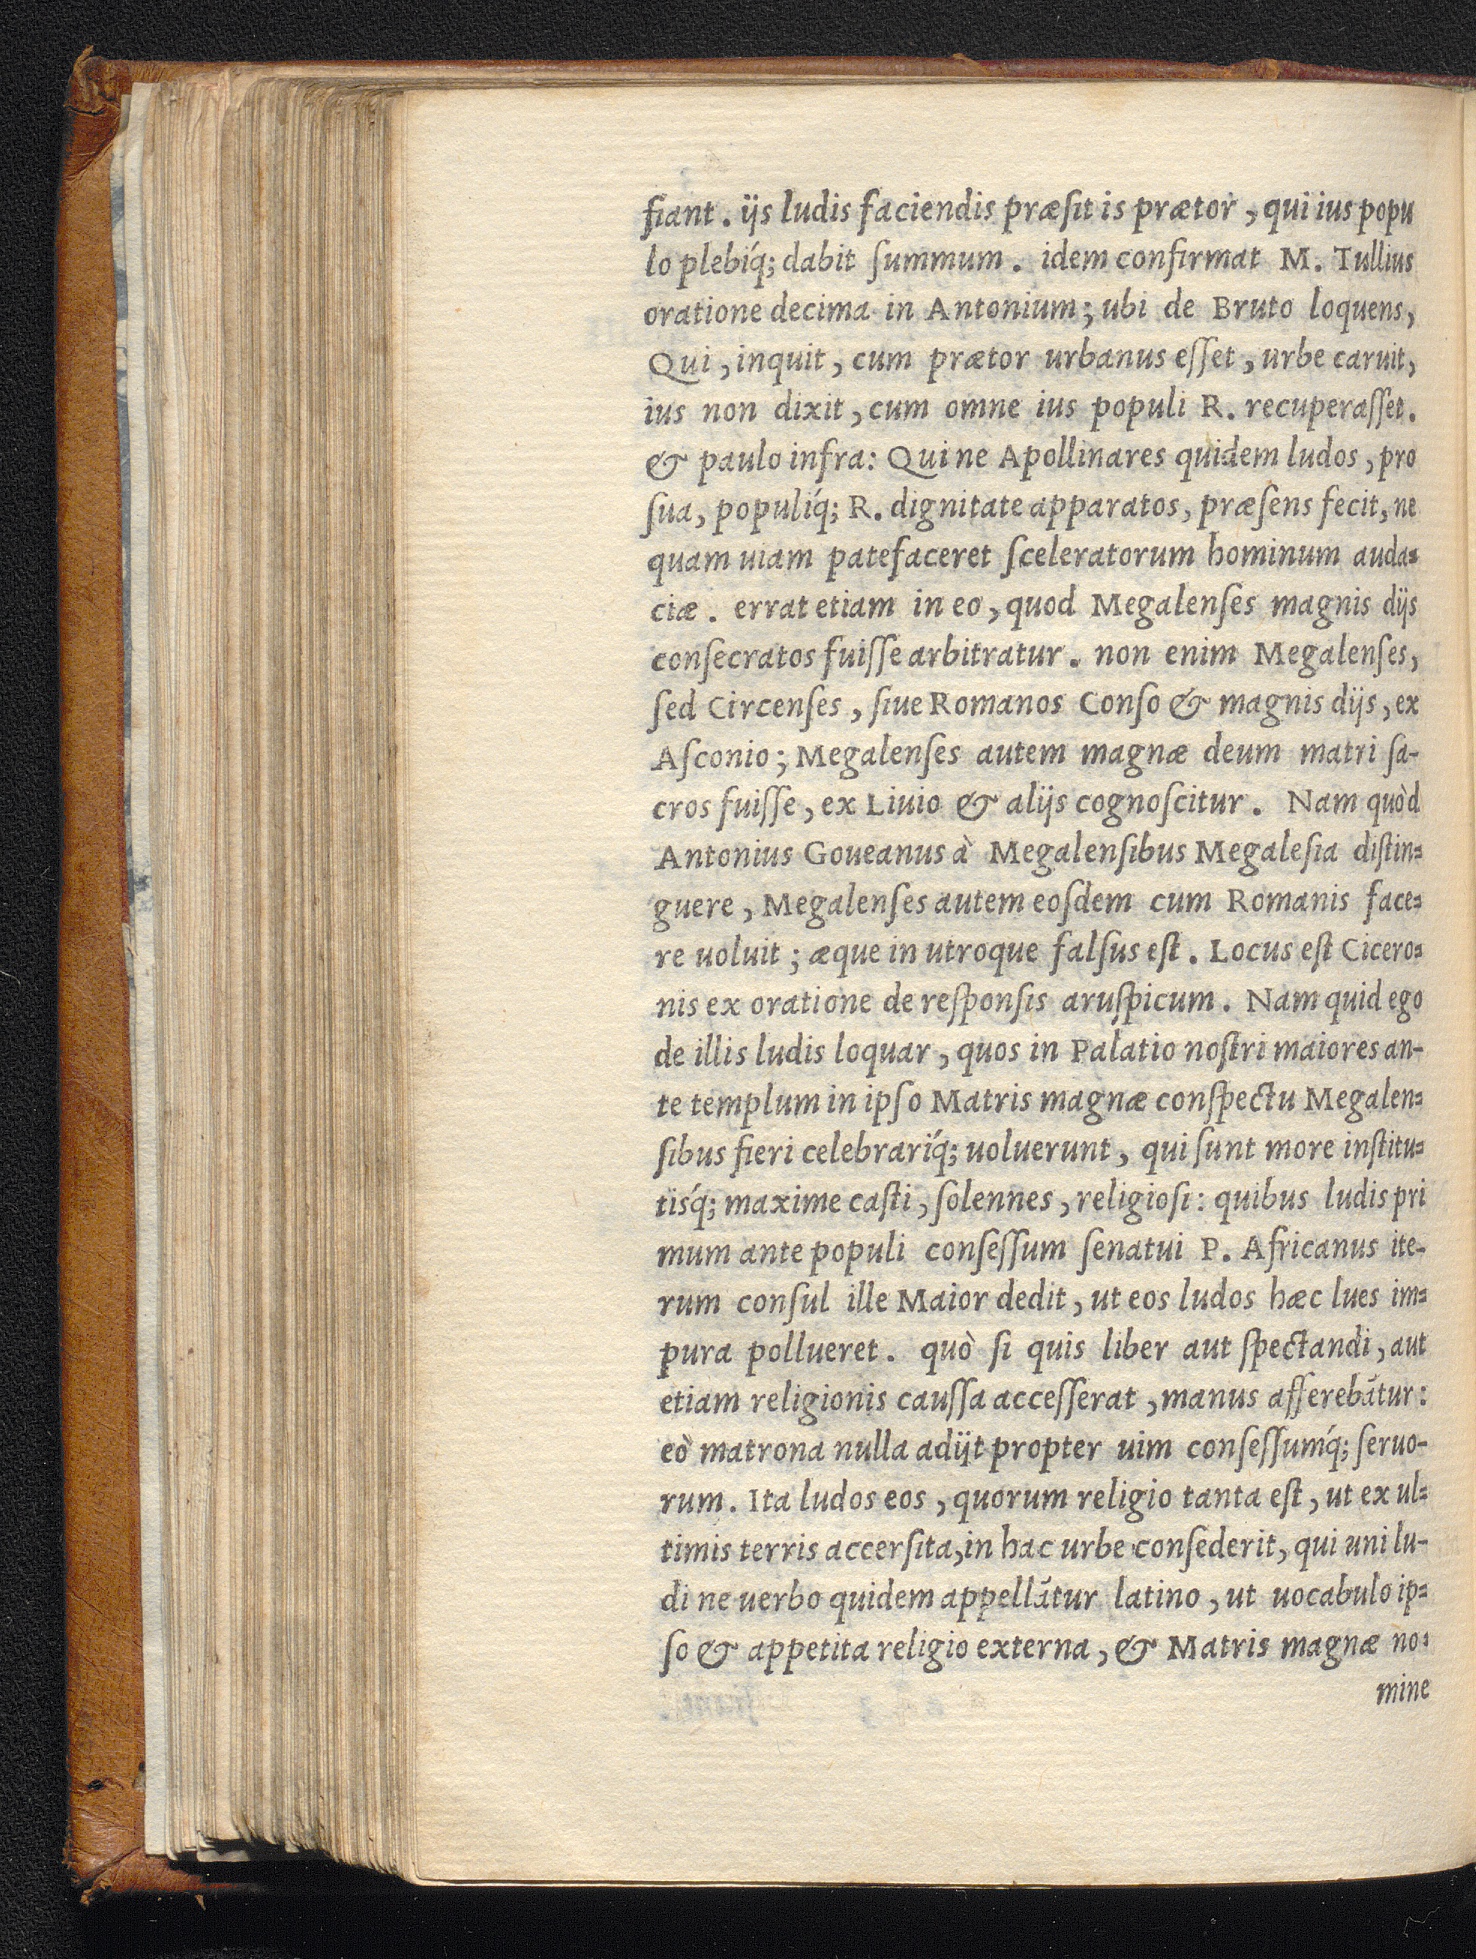 fiant. ijs ludis faciendis præſit is prætor, qui ius popu
lo plebíq; dabit ſummum. idem confirmat M. Tullius
oratione decima in Antonium; ubi de Bruto loquens,
Qui, inquit, cum prætor urbanus eſſet, urbe caruit,
ius non dixit, cum omne ius populi R. recuperaſſet.
& paulo infra: Qui ne Apollinares quidem ludos, pro
ſua, populíq; R. dignitate apparatos, præſens fecit, ne
quam uiam patefaceret ſceleratorum hominum auda-
ciæ. errat etiam in eo, quod Megalenſes magnis dijs
conſecratos fuiſſe arbitratur. non enim Megalenſes,
ſed Circenſes, ſiue Romanos Conſo & magnis dijs, ex
Aſconio; Megalenſes autem magnæ deum matri ſa-
cros fuiſſe, ex Liuio & alijs cognoſcitur. Nam quòd
Antonius Goueanus à Megalenſibus Megaleſia diſtin-
guere, Megalenſes autem eoſdem cum Romanis face-
re uoluit; æque in utroque falſus eſt. Locus eſt Cicero-
nis ex oratione de reſponſis aruſpicum. Nam quid ego
de illis ludis loquar, quos in Palatio noſtri maiores an-
te templum in ipſo Matris magnæ conſpectu Megalen-
ſibus fieri celebraríq; uoluerunt, qui ſunt more inſtitu-
tiśq; maxime caſti, ſolennes, religioſi: quibus ludis pri
mum ante populi conſeſſum ſenatui P. Africanus ite-
rum conſul ille Maior dedit, ut eos ludos hæc lues im-
pura pollueret. quò ſi quis liber aut ſpectandi, aut
etiam religionis cauſſa acceſſerat, manus afferebãtur:
eò matrona nulla adijt propter uim conſeſſumq́; ſeruo-
rum. Ita ludos eos, quorum religio tanta eſt, ut ex ul-
timis terris accerſita, in hac urbe conſederit, qui uni lu-
di ne uerbo quidem appellãtur latino, ut uocabulo ip-
ſo & appetita religio externa, & Matris magnæ no-
mine